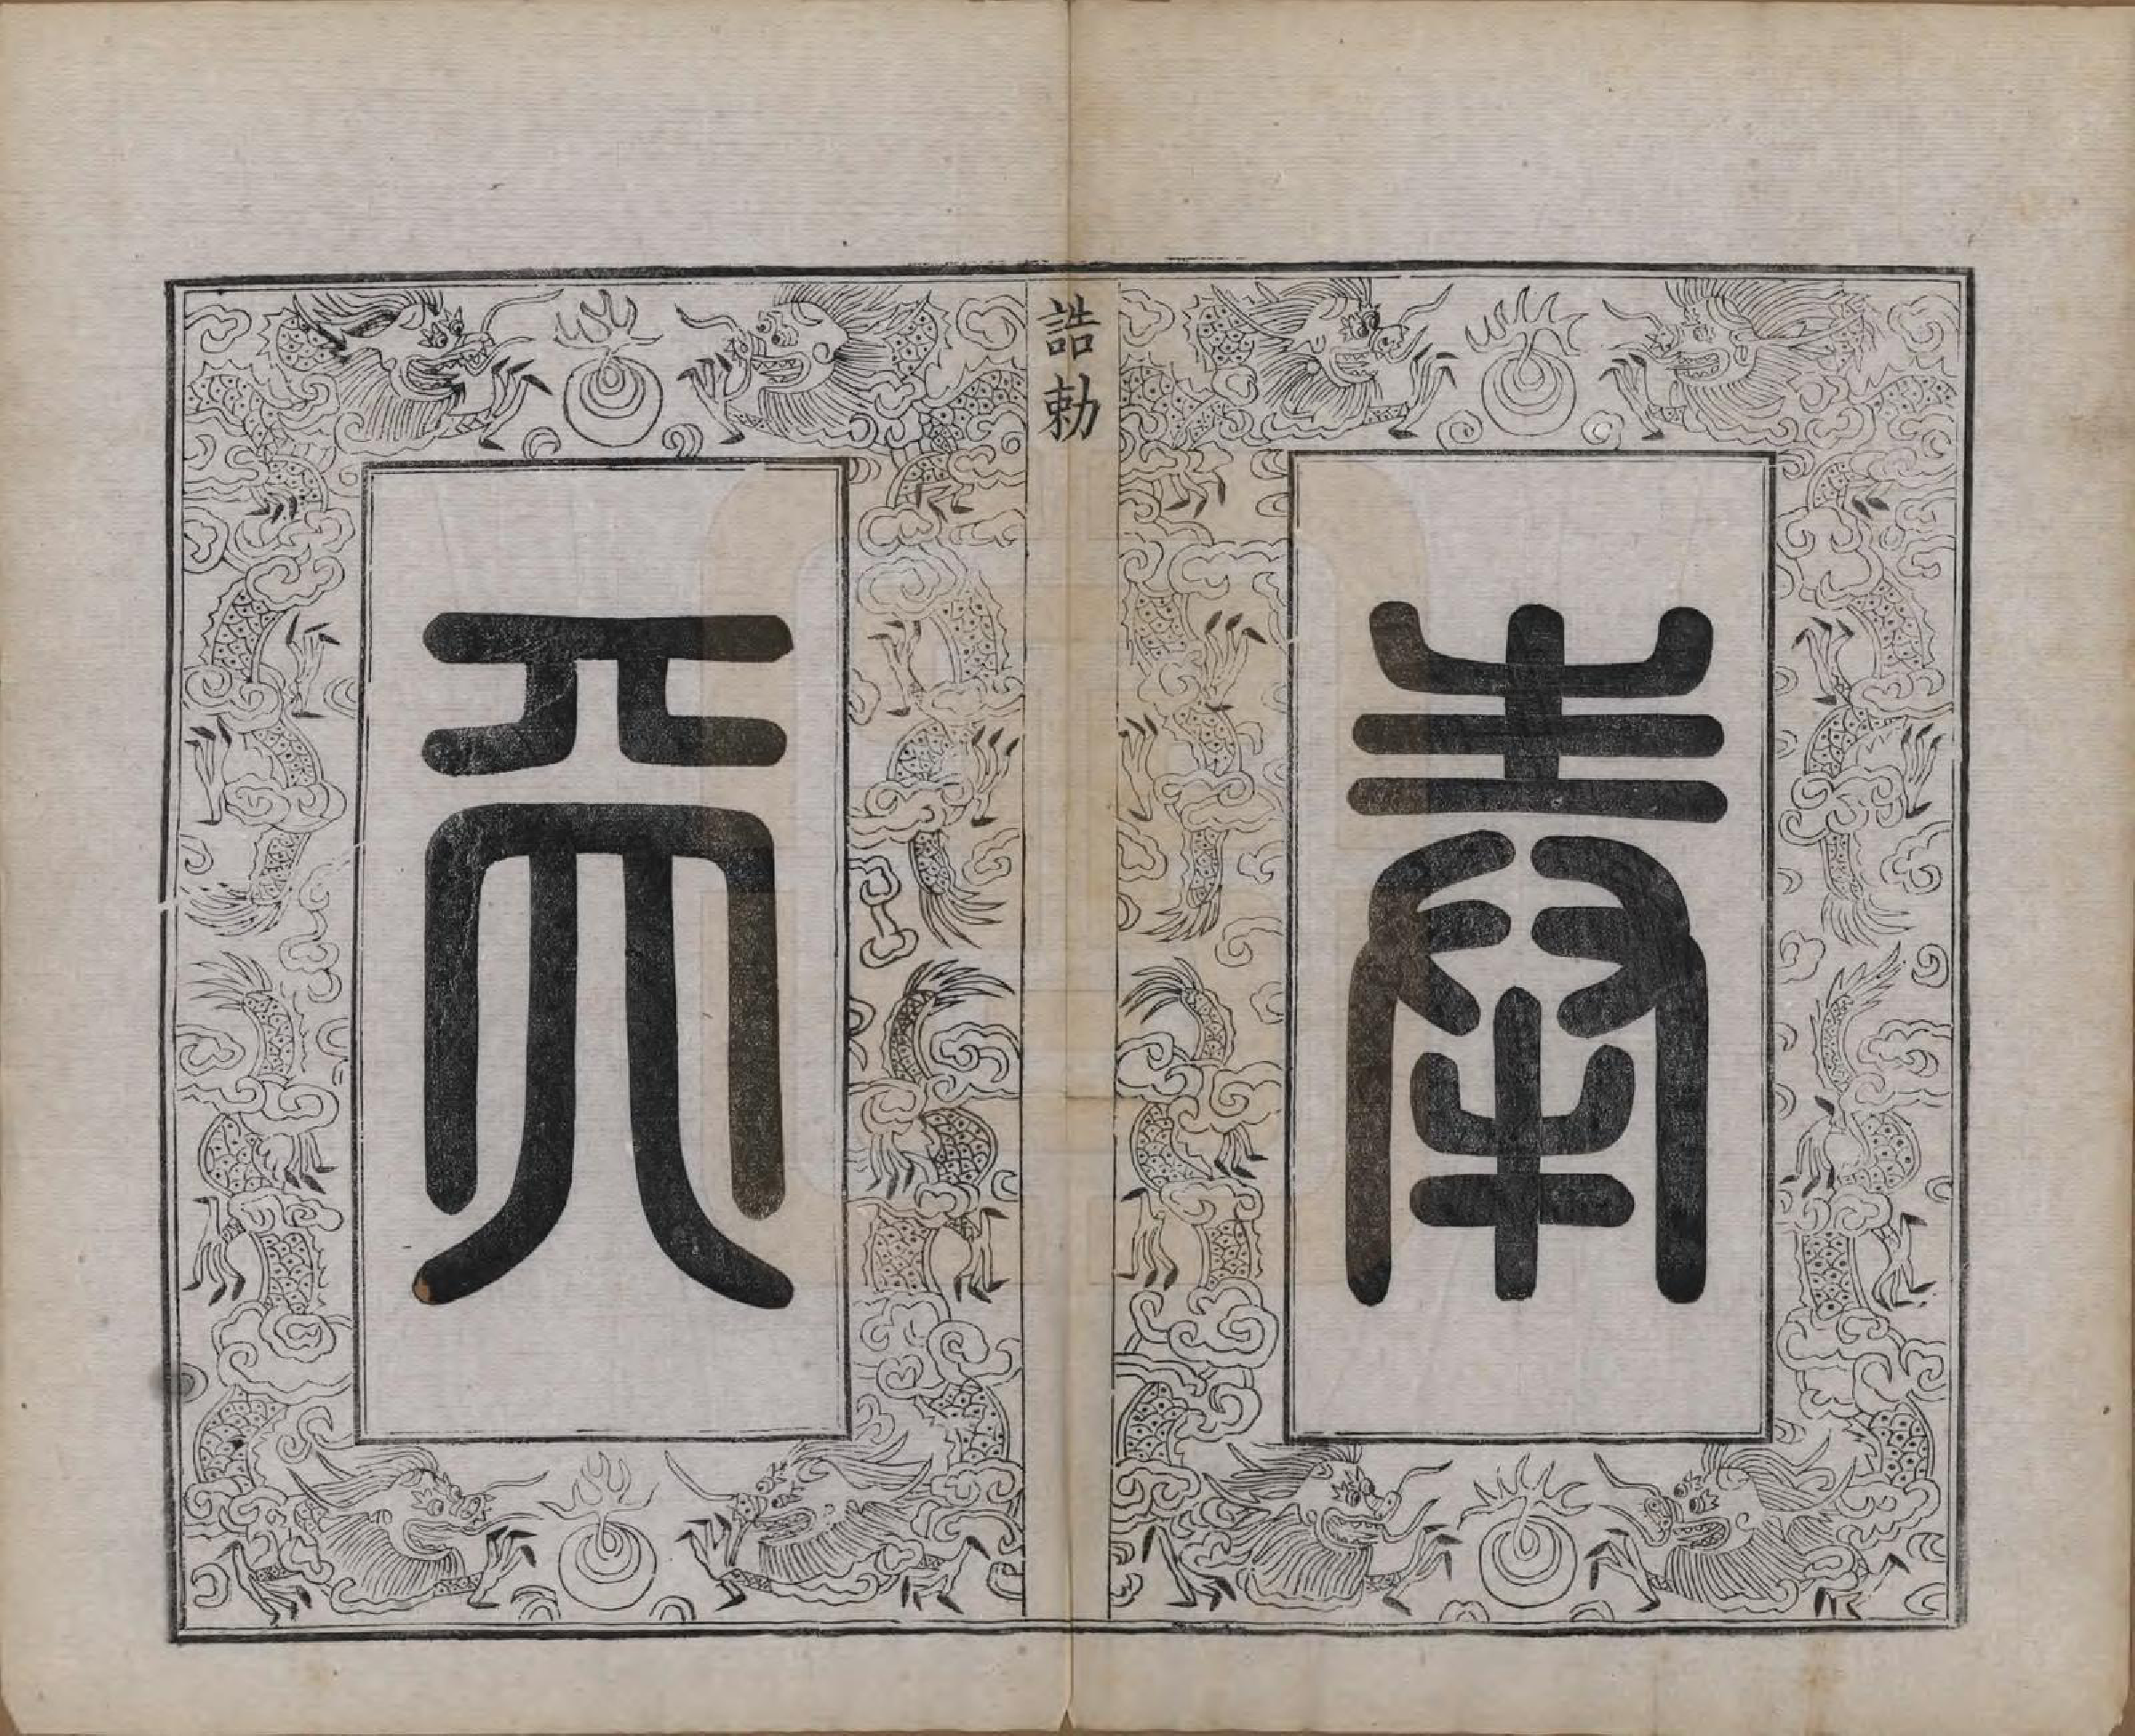 奉
誥勅
天